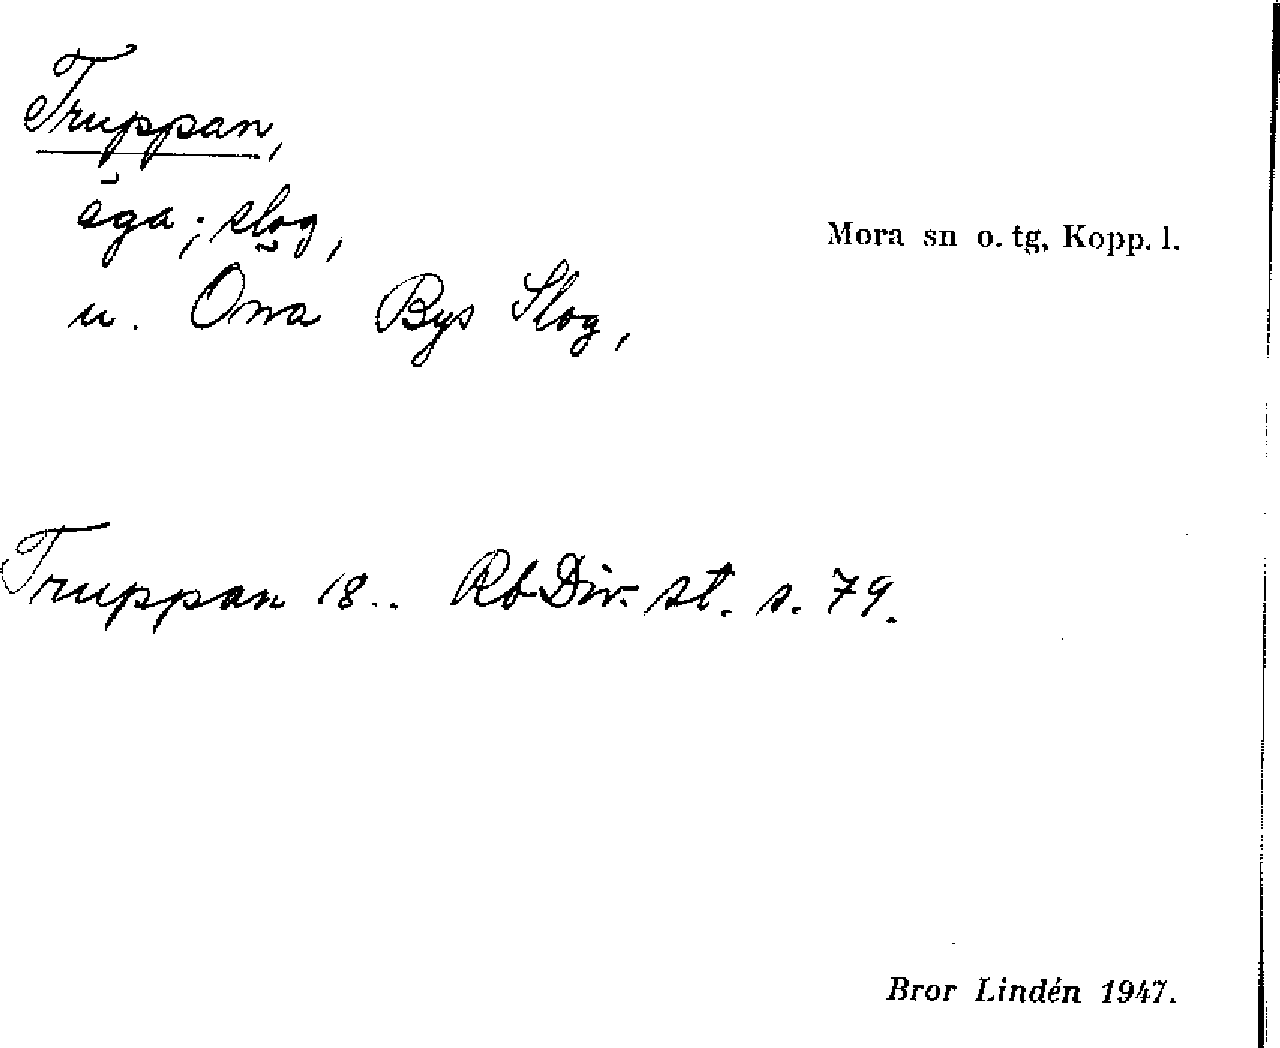 Truppan,
äga; slog,
Mora sn o. tg, Kopp. l.
u. Öna Bys Slog,
Truppan 18.. Rb Div. st. s. 79.
Bror Lindén 1947.